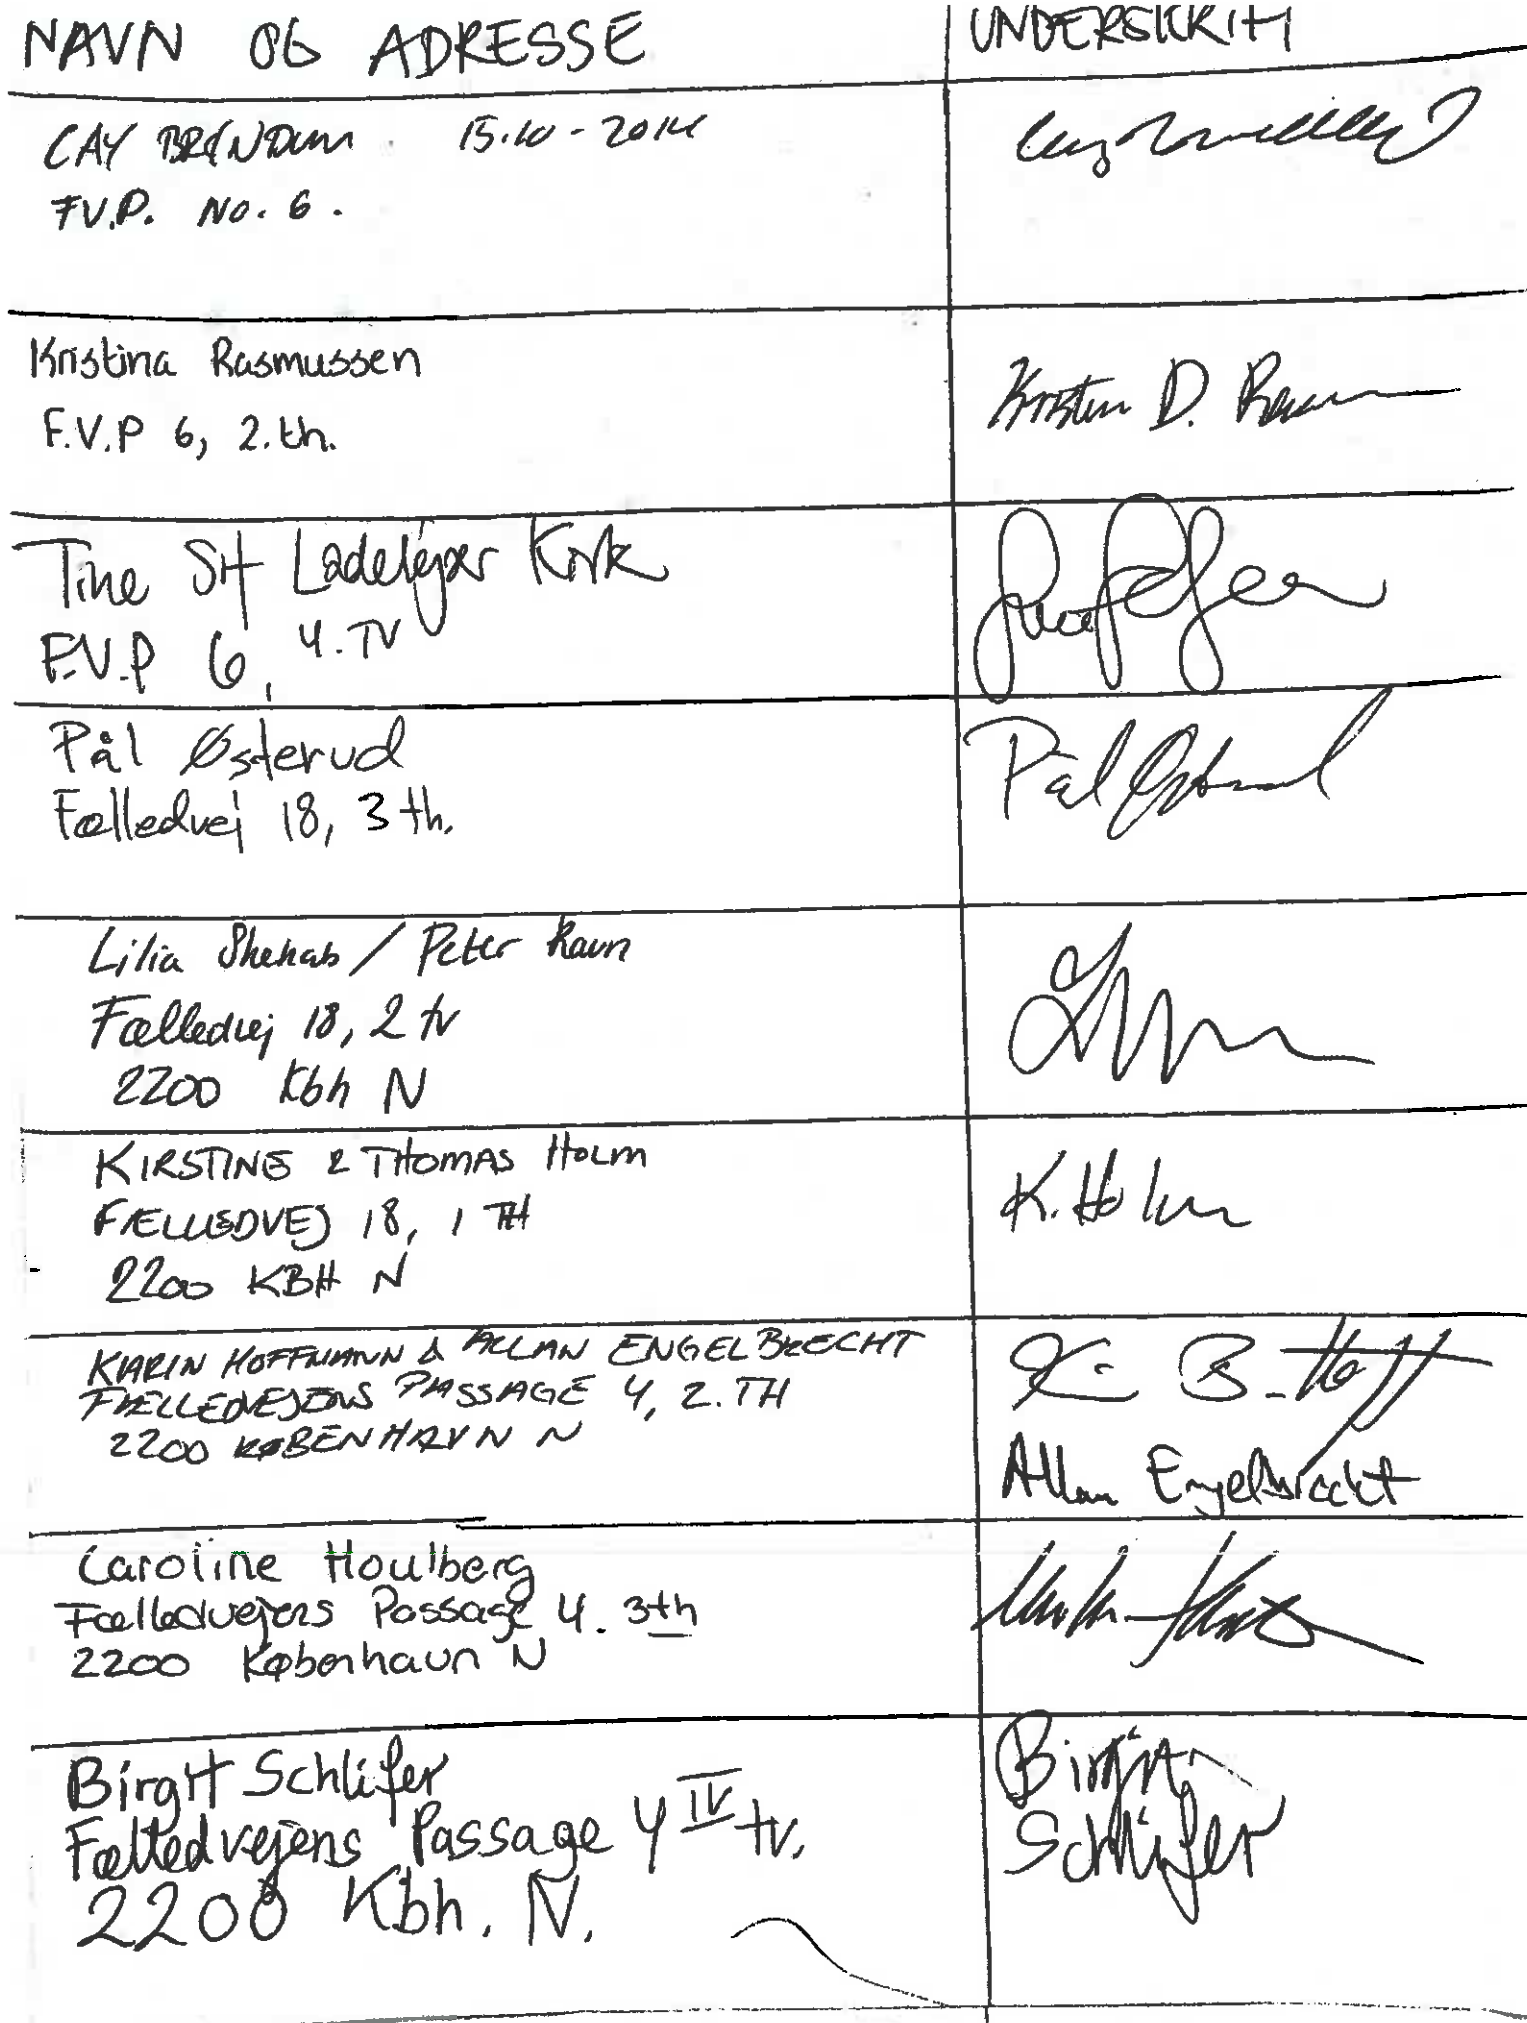 NAVN OG ADRESSE
UNDERSKRIFT
CAY BRYNDUM. 15.10-2014
F.V.P. No. 6.
Kristina Rasmussen
F.V.P 6, 2.th.
Kristina D.
Tine Ladekjær Kirk
F.V.P 6, 4. TV
Pål Østerud
Fælledvej 18, 3 th.
Pål Østerud
Lilia Shehab / Peter Ravn
Fælledvej 18, 2 tv
2200 Kbh N
KIRSTINE & THOMAS HOLM
FÆLLEDVEJ 18, 1 TH
2200 KBH N
K. Holm
KARIN HOFFMANN & ALLAN ENGELBRECHT
FÆLLEDVEJENS PASSAGE 4, 2. TH
2200 KØBENHAVN N
Allan Engelbrecht
Caroline Houlberg
Fælledvejens Passage 4. 3th
2200 København N
Birgit Schlüfer
Fælledvejens Passage 4 IV tv.
2200 Kbh. N.
Birgit
Schlüfer